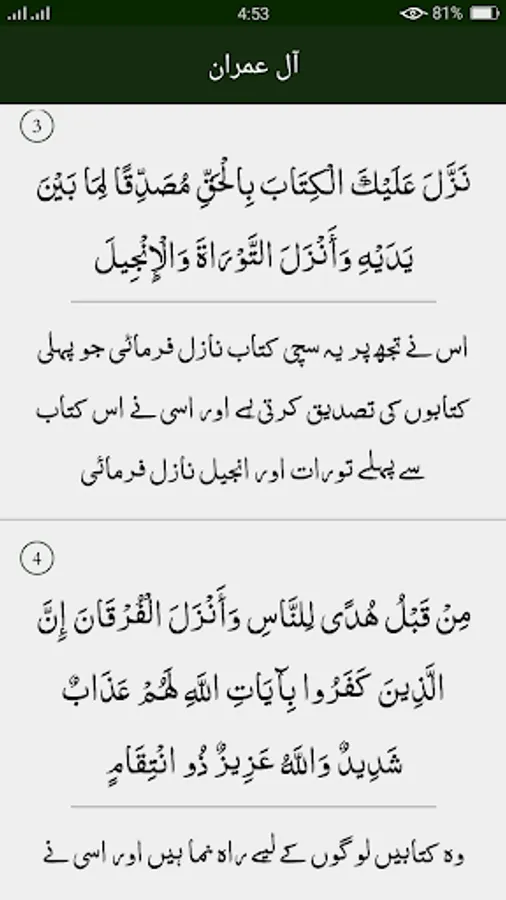 4:53 81%
آل عمران
3
نَزَّلَ عَلَيْكَ الْكِتَابَ بِالْحَقِّ مُصَدِّقًا لِمَا بَيْنَ
يَدَيْهِ وَأَنْزَلَ التَّوْرَاةَ وَالْإِنْجِيلَ
اس نے تجھ پر یہ سچی کتاب نازل فرمائی جو پہلی
کتابوں کی تصدیق کرتی ہے اور اسی نے اس کتاب
سے پہلے تورات اور انجیل نازل فرمائی
4
مِنْ قَبْلُ هُدًى لِلنَّاسِ وَأَنْزَلَ الْفُرْقَانَ إِنَّ
الَّذِينَ كَفَرُوا بِآيَاتِ اللَّهِ لَهُمْ عَذَابٌ
شَدِيدٌ وَاللَّهُ عَزِيزٌ ذُو انْتِقَامٍ
وہ کتابیں لوگوں کے لیے راہ نما ہیں اور اسی نے